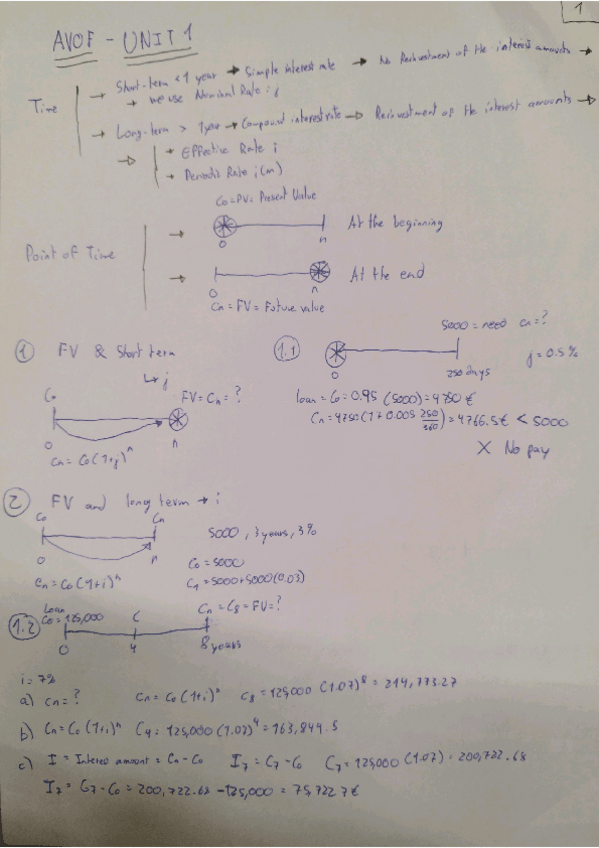 1
AVOF - UNIT 1
Time → Short-term < 1 year → Simple interest rate → No Reinvestment of the interest amounts →
→ we use Nominal Rate: j
→ Long-term > 1 year → Compound interest rate → Reinvestment of the interest amounts →
⇒ → Effective Rate i
→ Periodic Rate i(m)
C0 = PV = Present Value
Point of Time → 0 n At the beginning
→ 0 n At the end
Cn = FV = Future value
① FV & Short term
↳ j
C0 FV = Cn = ?
0 n
Cn = C0 (1+j)^n
1.1 5000 = need Cn = ?
0 250 days j = 0.5 %
loan = C0 = 0.95 (5000) = 4750 €
Cn = 4750 (1 + 0.005 250/360) = 4766.5 € < 5000
X No pay
② FV and long term → i
C0 Cn
0 n
Cn = C0 (1+i)^n
5000, 3 years, 3%
C0 = 5000
C1 = 5000 + 5000 (0.03)
1.2 Loan
C0 = 125,000 C Cn = C8 = FV = ?
0 4 8 years
i = 7%
a) Cn = ? Cn = C0 (1+i)^n C8 = 125,000 (1.07)^8 = 214,773.27
b) Cn = C0 (1+i)^n C4 = 125,000 (1.07)^4 = 163,849.5
c) I = Interes amount = Cn - C0 I7 = C7 - C0 C7 = 125,000 (1.07) = 200,722.68
I7 = C7 - C0 = 200,722.68 - 125,000 = 75,722.7 €